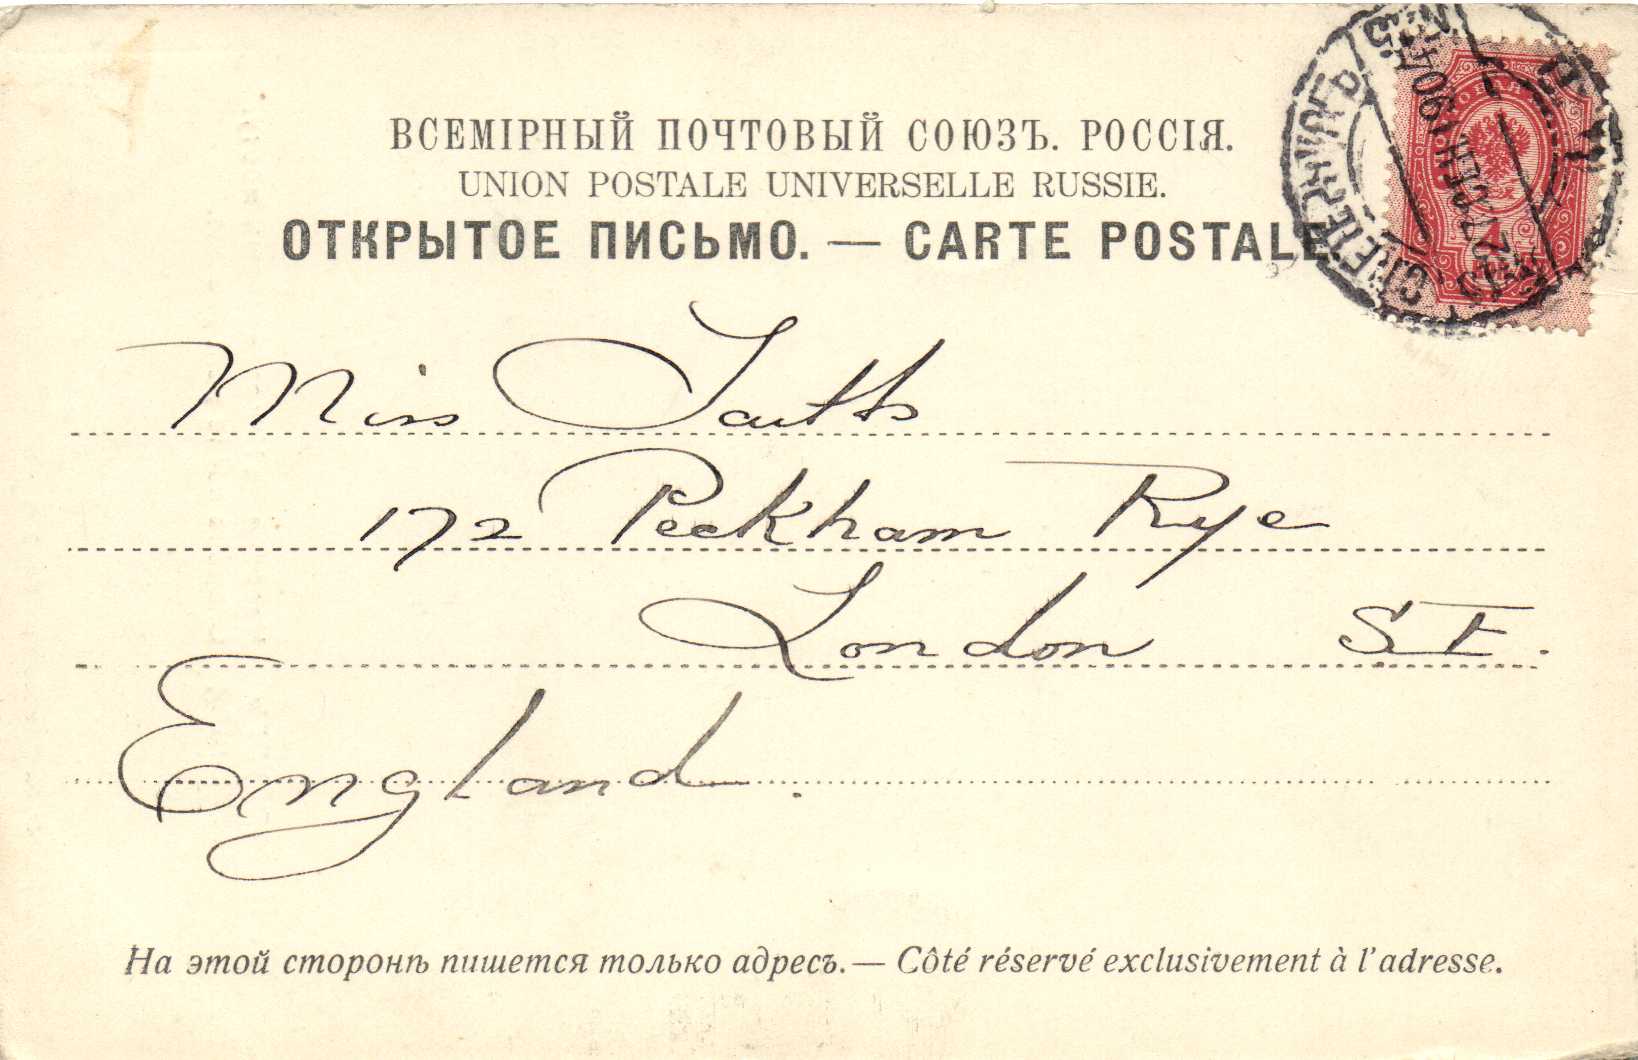 ВСЕМІРНЫЙ ПОЧТОВЫЙ СОЮЗЪ. РОССІЯ.
UNION POSTALE UNIVERSELLE RUSSIE.
ОТКРЫТОЕ ПИСЬМО. — CARTE POSTALE.
Miss
172 Peckham Rye
London S.E.
England.
На этой сторонѣ пишется только адресъ. — Côté réservé exclusivement à l'adresse.